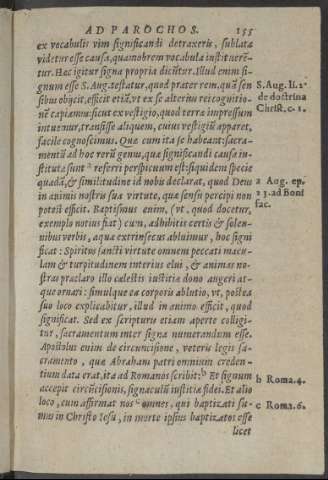 AD PAROCHOS. 155
ex vocabulis vim significandi detraxeris, sublata
videtur esse causa, quamobrem vocabula instituerẽ-
tur. Hæc igitur signa propria dicũtur. Illud enim si-
gnum esse S. Aug. testatur, quod præter rem, quã sen
sibus obijcit, efficit etiã, vt ex se alterius rei cognitio-
nẽ capiamus: sicut ex vestigio, quod terræ impressum
intuemur, transisse aliquem, cuius vestigiũ apparet,
facile cognoscimus. Quæ cum ita se habeant: sacra-
mentũ ad hoc rerũ genus, quæ significandi causa in-
stitutæ sunt a referri perspicuum est: siquidem specie
quadã, & similitudine id nobis declarat, quod Deus
in animis nostris sua virtute, quæ sensu percipi non
potest efficit. Baptismus enim, (vt, quod docetur,
exemplo notius fiat) cum, adhibitis certis & solen-
nibus verbis, aqua extrinsecus abluimur, hoc signi
ficat: Spiritus sancti virtute omnem peccati macu-
lam & turpitudinem interius elui, & animas no-
stras præclaro illo cælestis iustitiæ dono augeri at-
que ornari: simulque ea corporis ablutio, vt, postea
suo loco explicabitur, illud in animo efficit, quod
significat. Sed ex scripturis etiam aperte colligi-
tur, sacramentum inter signa numerandum esse.
Apostolus enim de circuncisione, veteris legis sa-
cramento, quæ Abrahæ patri omnium creden-
tium data erat, ita ad Romanos scribit: b Et signum
accepit circũcisionis, signaculũ iustitiæ fidei. Et alio
loco, cum affirmat nos c omnes, qui baptizati su-
mus in Christo Iesu, in morte ipsius baptizatos esse
licet
S. Aug. li. 2.
de doctrina
Christ. c. 1.
a Aug. ep.
23. ad Boni
fac.
b Roma. 4.
c Roma. 6.